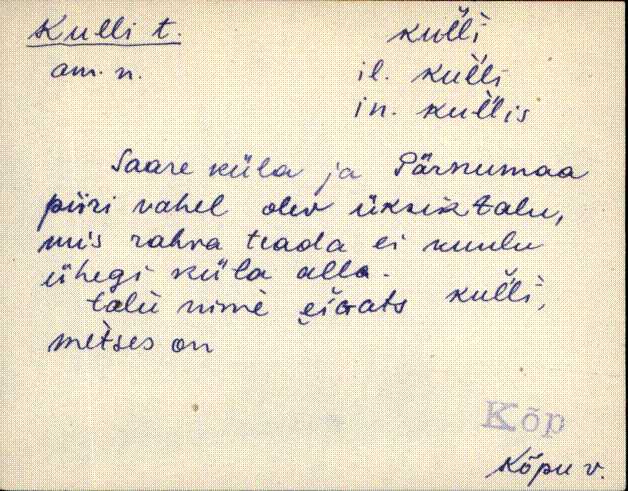 Kulli t. kul̆li
am. n. il. kul̆li
in. kul̆lis
Saare küla ja Pärnumaa
piiri vahel olev üksiktalu,
mis rahva teada ei kuulu
ühegi küla alla.
talu nime kul̆li,
metses on
Kõp
Kõpu v.